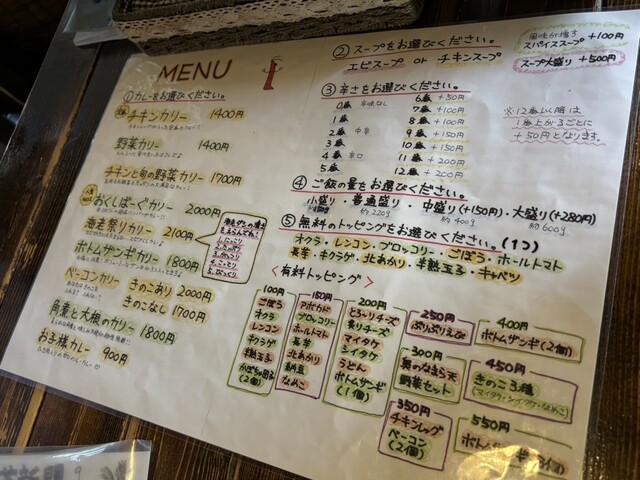 MENU
①カレーをお選びください。
チキンカリー 1400円
野菜カリー 1400円
チキンと旬の野菜カリー 1700円
おくしばーぐカリー 2000円
海老祭りカリー 2100円
ボトムザンギカリー 1800円
ベーコンカリー きのこあり 2000円
きのこなし 1700円
角煮と大根のカリー 1800円
お子様カレー 900円
② スープをお選びください。
エビスープ or チキンスープ
スパイススープ +100円
スープ大盛り +500円
③ 辛さをお選びください。
0番 辛味なし
1番
2番 中辛
3番
4番 辛口
5番
6番 +50円
7番 +100円
8番 +100円
9番 +150円
10番 +150円
11番 +200円
12番 +200円
※12番以降は
1番上がるごとに
+50円となります。
④ ご飯の量をお選びください。
小盛り・普通盛り・中盛り(+150円)・大盛り(+280円)
約220g 約400g 約600g
⑤ 無料のトッピングをお選びください。(1つ)
オクラ・レンコン・ブロッコリー・ごぼう・ホールトマト
長芋・キクラゲ・北あかり・半熟玉子・キャベツ
<有料トッピング>
100円
ごぼう
オクラ
レンコン
キクラゲ
半熟玉子
かぼちゃ団子
(2個)
150円
アボカド
ブロッコリー
ホールトマト
長芋
北あかり
納豆
なめこ
200円
とろ〜りチーズ
炙りチーズ
マイタケ
シイタケ
うどん
ボトムザンギ
(1個)
250円
ぷりぷりえび
300円
野菜セット
350円
チキンレッグ
ベーコン
(2個)
400円
ボトムザンギ(2個)
450円
きのこ3種
(マイタケ・シイタケ・なめこ)
550円